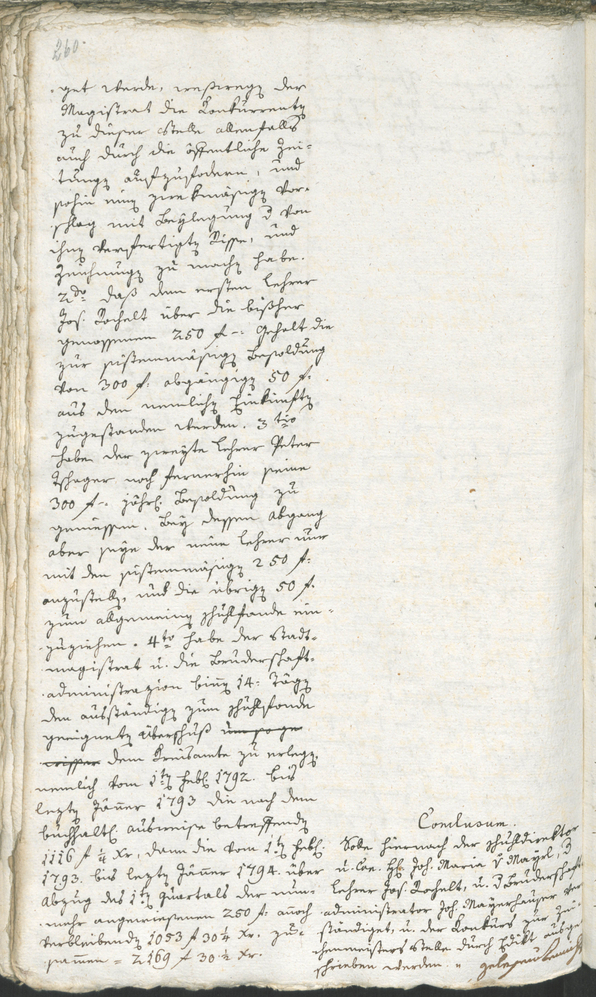 260.
get werde, weßwegen der
Magistrat die Konkurrenten
zu dieser Stelle allenfalls
auch durch die öffentliche Zei-
tungen aufzufodern, und
sohin einen zwekmäsigen Vor-
schlag mit Beylegung d. von
ihnen verfertigten Risse, und
Zeichnungen zu machen habe.
2do daß dem ersten Lehrer
Jos. Rochelt über die bisher
genossenen 250 f -: Gehalt die
zur sistemmäsigen Besoldung
von 300 f: abgängigen 50 f.
aus den nemlichen Einkünften
zugestanden werden. 3tio
habe der zweyte Lehrer Peter
noch fernerhin seine
300 f -. jährl. Besoldung zu
geniessen. Bey dessen Abgang
aber seye der neue Lehrer nur
mit den sistemmäsigen 250 f:
anzustellen, und die übrigen 50 f.
zum allgemeinen Schulfonde ein-
zuziehen. 4to habe der Stadt-
magistrat u. die Bruderschaft-
administrazion binnen 14: Tägen
den ausständigen zum Schulfonde
geeigneten Überschuß
dem Kreisamte zu erlegen,
nemlich vom 1ten Febr. 1792. bis
lezten Jänner 1793 die nach dem
buchhaltl. Ausweise betreffenden
1116 f ¼ Xr, dann die vom 1ten Febr.
1793. bis lezten Jänner 1794. über
Abzug des 1ten Quartals der nun-
mehr angewiesenen 250 f. annoch
verbleibenden 1053 f 30¼ Xr. zu-
sammen = 2169 f 30½ Xr.
Conclusum.
Solle hiernach der Schuldirektor
u. Joh. Maria v Mayrl, d
Lehrer Jos. Rochelt, u. d Bruderschaft
administrator Joh. Mayrhauser ver
ständiget, u. der Konkurs zur Zei-
chenmeistersstelle durch Edikt ausge
schrieben werden. "